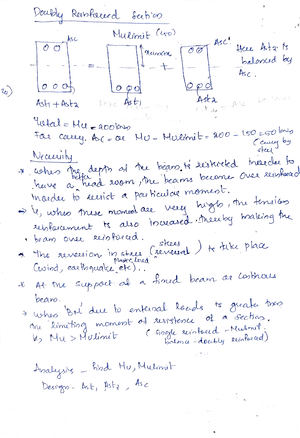 Doubly Reinforced Section
Asc Mulimit (150) Asc
= + Here Ast2 is
balanced by
Asc.
Ast1 + Ast2 Ast1 Ast2
Total = Mu = 200 kNm
For carry, Asc = or Mu - Mulimit = 200 - 150 = 50 kNm
(carry by steel)
Necessity
when the depth of the beam is restricted inorder to
have a better head room, the beams become over reinforced
inorder to resist a particular moment.
when these moment are very high, the tension
reinforcement is also increased thereby making the
beam over reinforced.
The reversion in stress (stress reversal) is take place
(wind, earthquake etc)..
At the support of a fixed beam or continous
beam.
when 'BM' due to external loads is greater than
the limiting moment of resistence of a section.
Mu > Mulimit (Single reinforced - Mulimit.
balance - doubly reinforced)
Analysis - find Mu, Mulimit
Design - Ast1, Ast2, Asc